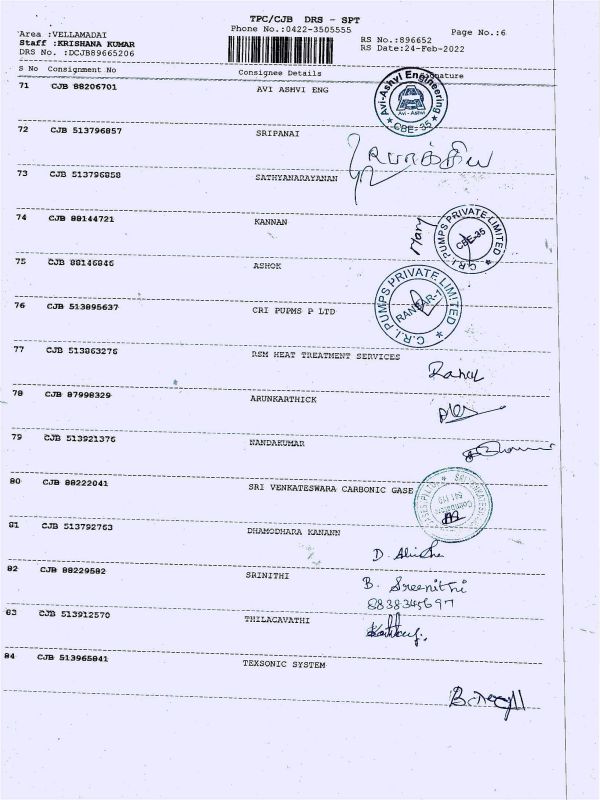 TPC/CJB DRS - SPT
Area :VELLAMADAI Phone No.:0422-3505555 Page No.:6
Staff :KRISHANA KUMAR RS No.:896652
DRS No. :DCJB89665206 RS Date:24-Feb-2022
S No Consignment No Consignee Details Signature
71 CJB 88206701 AVI ASHVI ENG
Avi-Ashvi Engineering
Avi - Ashvi
★ CBE-35 ★
72 CJB 513796857 SRIPANAI
73 CJB 513796858 SATHYANARAYANAN
74 CJB 88144721 KANNAN
Mary
C.R.I. PUMPS PRIVATE LIMITED ★
CBE-35
75 CJB 88146846 ASHOK
76 CJB 513895637 CRI PUPMS P LTD
★ C.R.I. PUMPS PRIVATE LIMITED ★
77 CJB 513863276 RSM HEAT TREATMENT SERVICES
78 CJB 87998329 ARUNKARTHICK
79 CJB 513921376 NANDAKUMAR
80 CJB 88222041 SRI VENKATESWARA CARBONIC GASE
81 CJB 513792763 DHAMODHARA KANANN
82 CJB 88229582 SRINITHI
B. Sreenithi
8838345697
83 CJB 513912570 THILACAVATHI
84 CJB 513965841 TEXSONIC SYSTEM